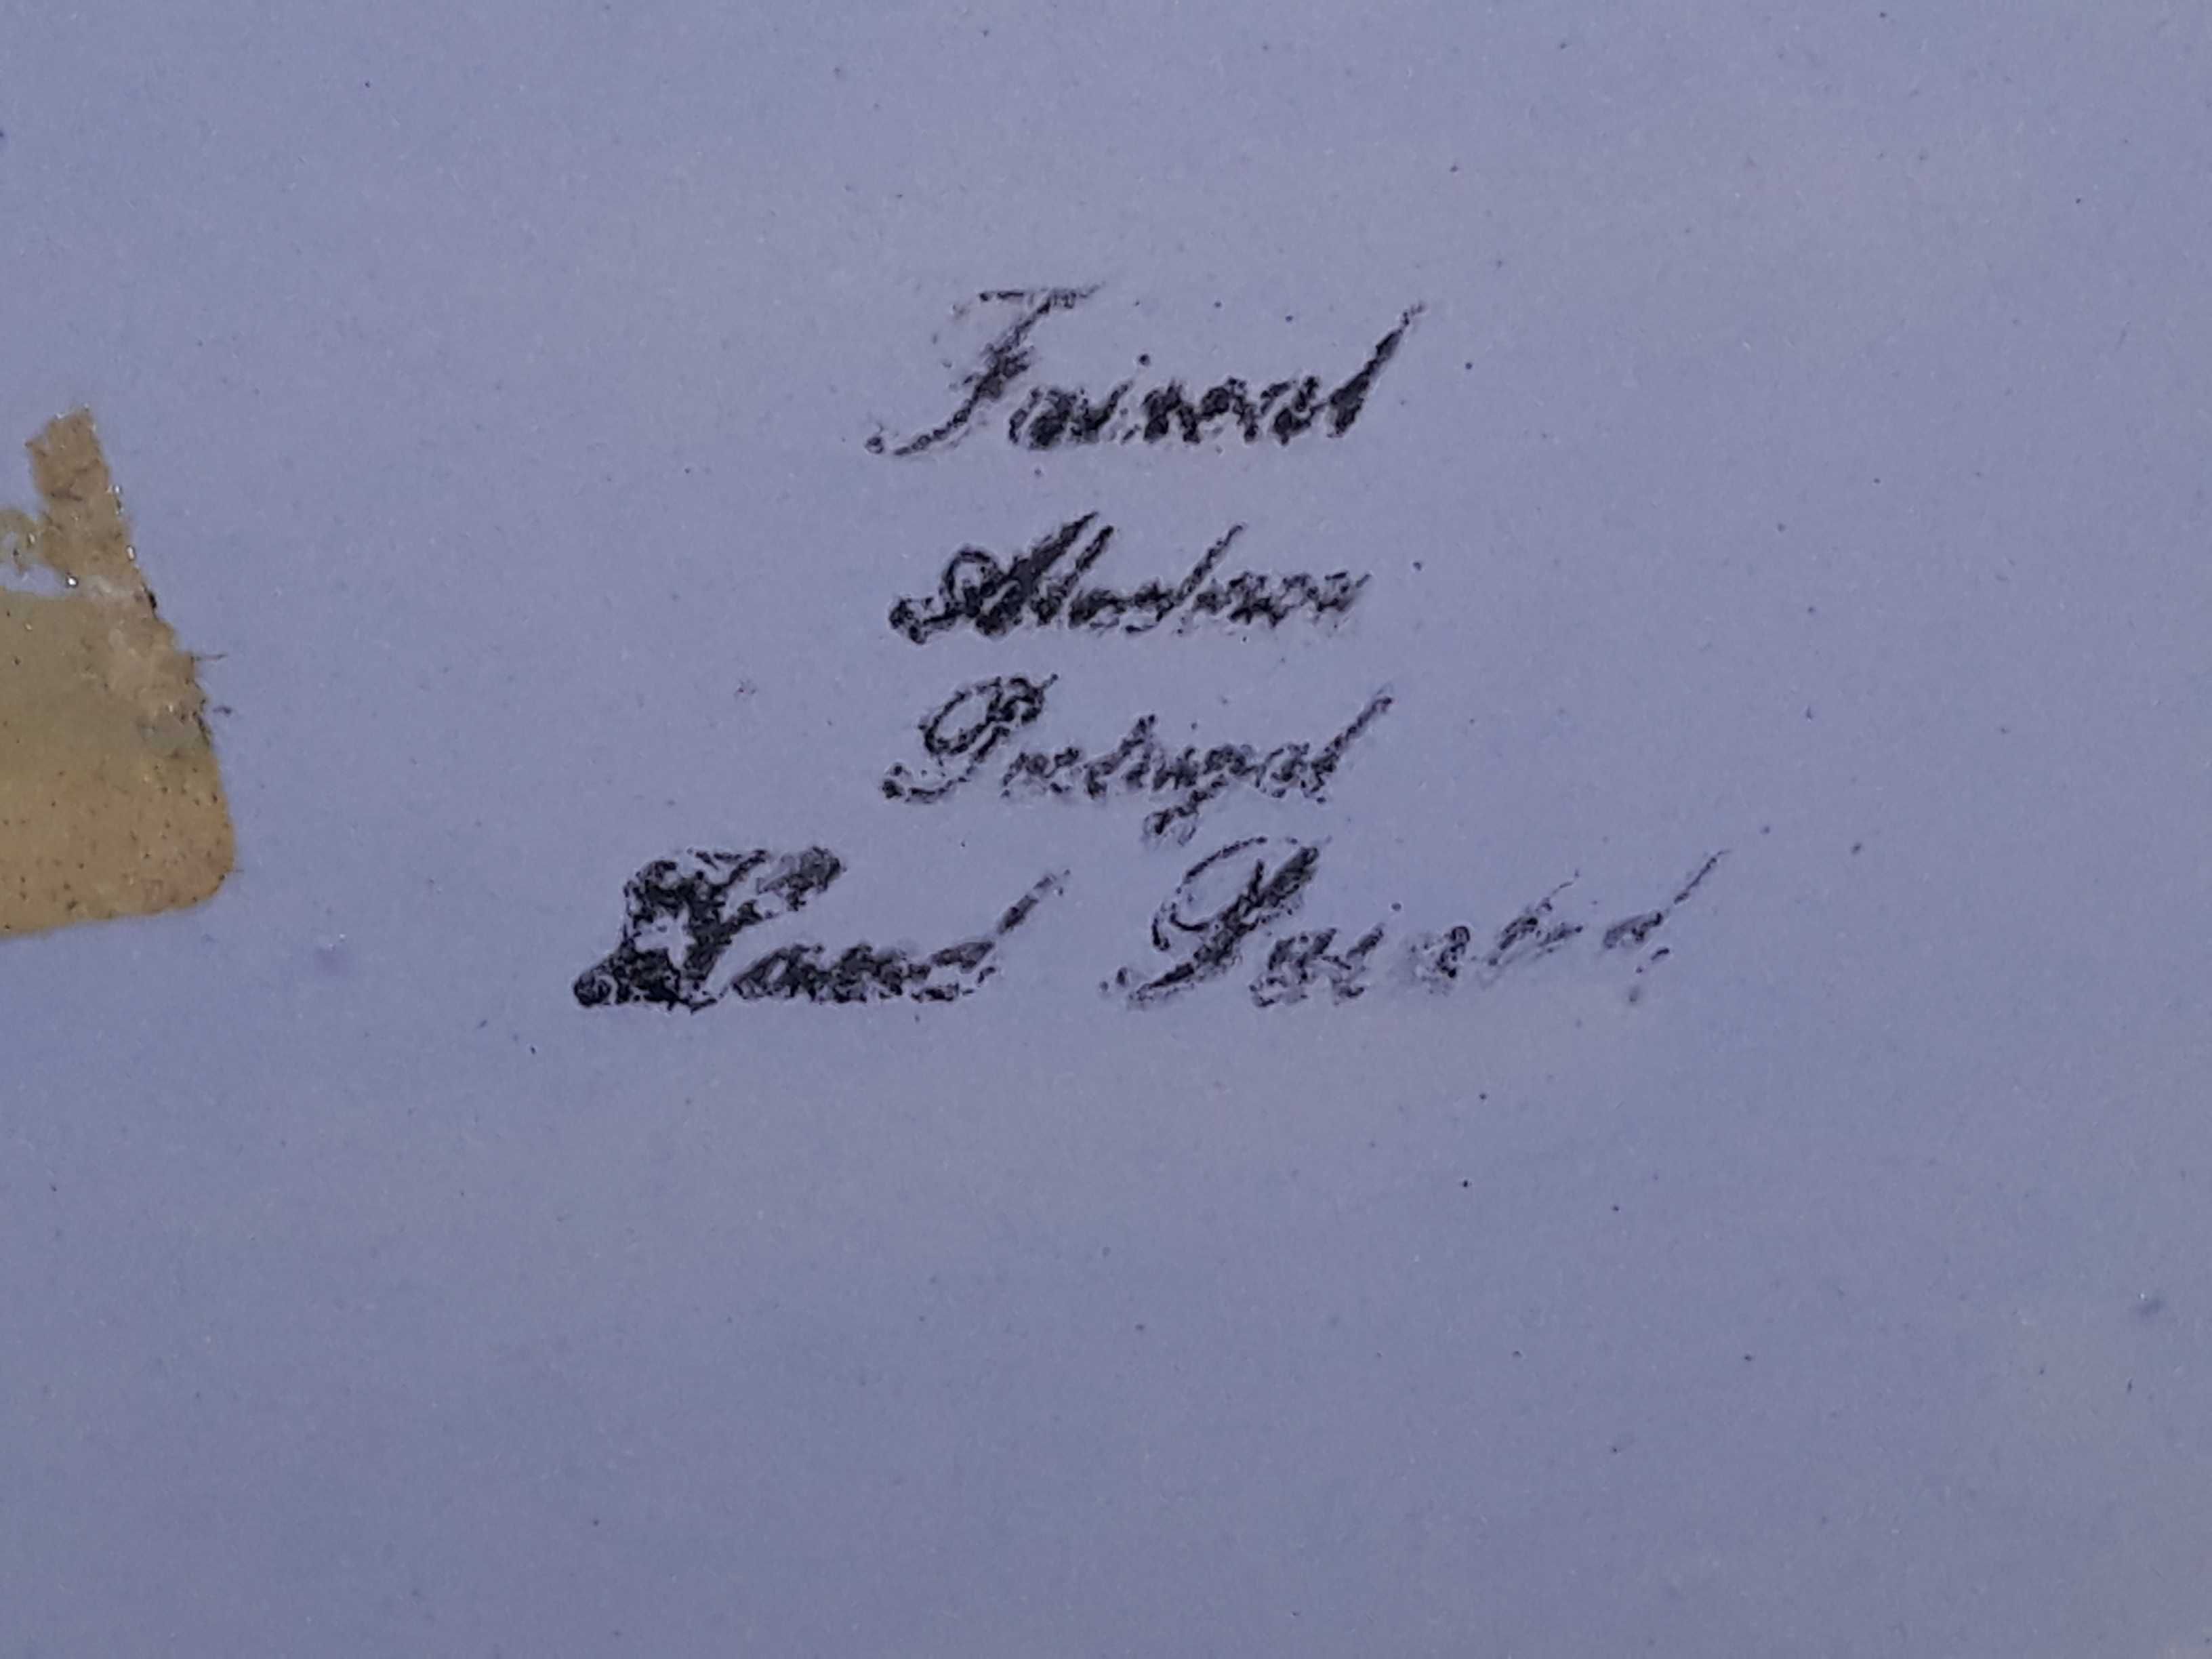 Faineal
Alcobaca
Portugal
Hand Painted